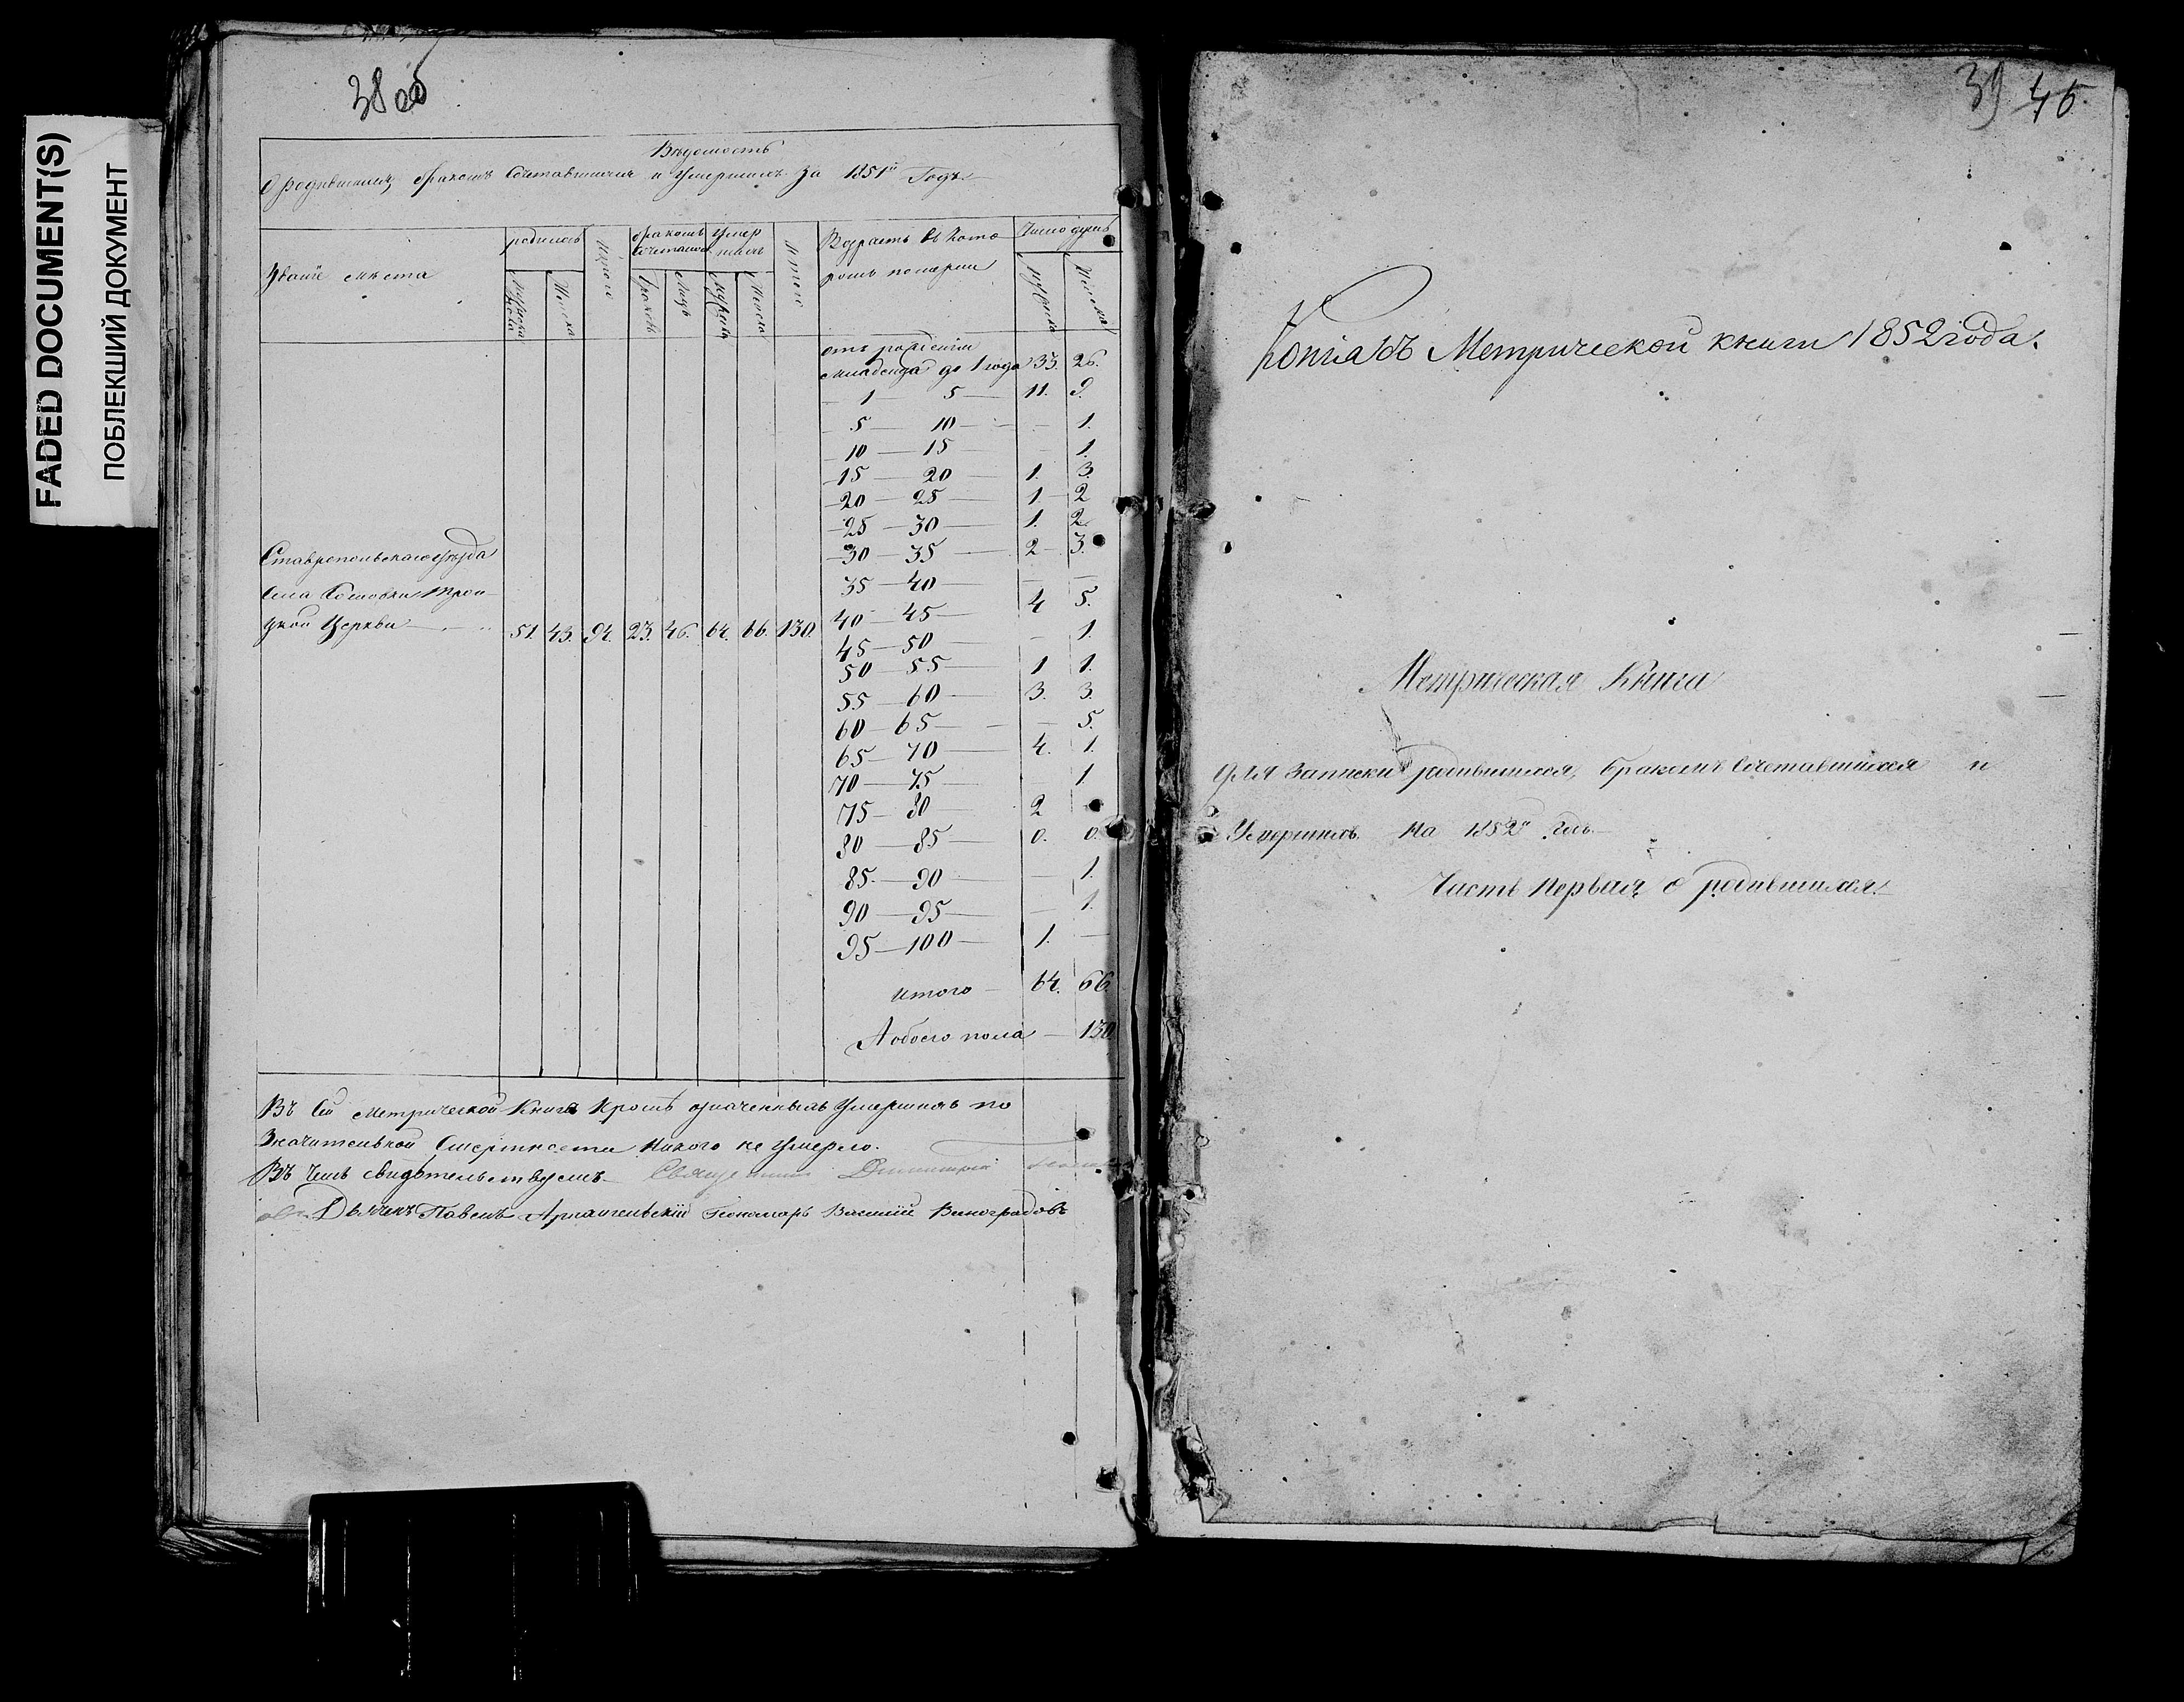 FADED DOCUMENT(S)
ПОБЛЕКШИЙ ДОКУМЕНТ
38 об
Вѣдомость
О родившихся, бракомъ сочетавшихся и умершихъ за 1851й Годъ.
Званіе мѣста
родилось
Итого
бракомъ сочеталось
умерло
Итого
Возрастъ въ кото
ромъ померли
Число душъ
Мужеска пола
Женска
Браковъ
Лицъ
Мужеска
Женска
Мужеска
Женска
отъ рожденія
младенца до 1 года 33. 26.
1 — 5 — 11. 9.
5 — 10 — — 1.
10 — 15 — 1.
15 — 20 — 1. 3.
20 — 25 — 1. 2
25 — 30 — 1. 2.
30 — 35 — 2 — 3.
35 — 40 — — —
40 — 45 — 4 5.
45 — 50 — — 1.
50 — 55 — 1 1.
55 — 60 — 3. 3.
60 — 65 — — 5.
65 — 70 — 4. 1.
70 — 75 — 1
75 — 80 — 2
80 — 85 — 0. 0.
85 — 90 — — 1.
90 — 95 — — 1.
95 — 100 — 1. —
Итого — 64. 66.
А обоего пола — 130.
Ставропольскаго уѣзда
Села Трои
цкой Церкви — 51. 43. 94. 23. 46. 64. 66. 130.
Въ сей метрической книгѣ кромѣ означенныхъ умершихъ по
Значительной смертности никого не умерло.
Въ чемъ свидѣтельствуемъ Священникъ Димитрій
Дьячекъ Павелъ Архангельскій Пономарь Василій Виноградовъ
39 46
Копія съ Метрической книги 1852 года.
Метрическая Книга
для записки родившихся, бракомъ сочетавшихся и
Умершихъ на 1852й годъ.
Часть первая о родившихся.